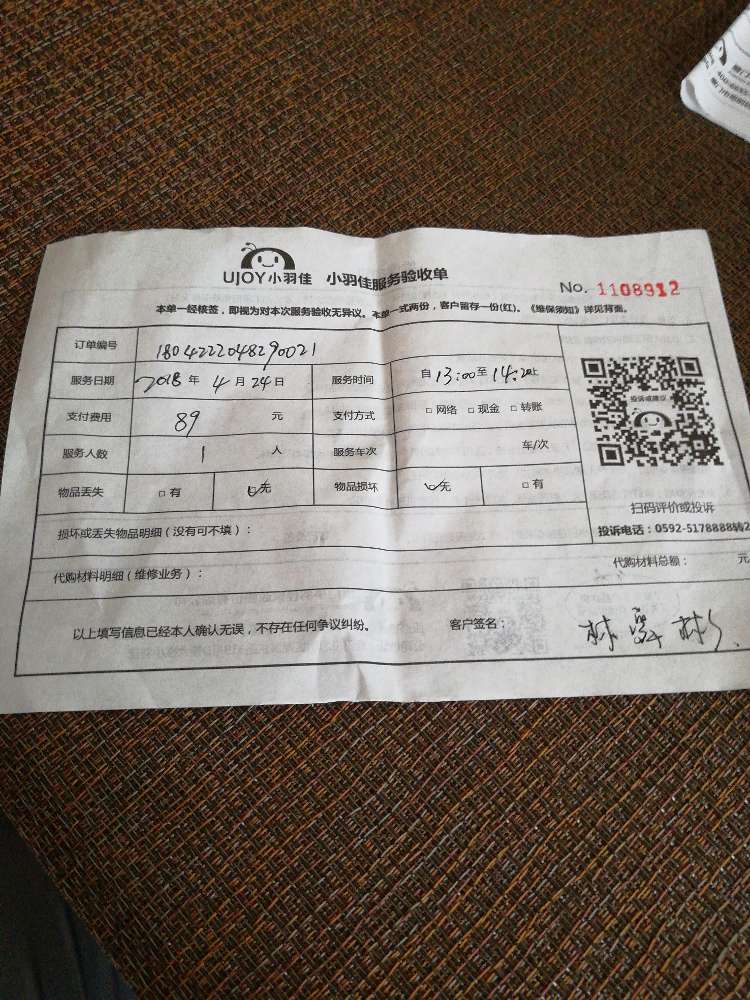 UJOY小羽佳 小羽佳服务验收单
No. 1108912
本单一经核签，即视为对本次服务验收无异议。本单一式两份，客户暂存一份(红)。《维保须知》详见背面。
订单编号 1804222048290021
服务日期 2018 年 4 月 24 日 服务时间 自 13:00 至 14:20 止
支付费用 89 元 支付方式 □ 网络 □ 现金 □ 转账
服务人数 1 人 服务车次 车/次
物品丢失 □ 有 □ 无 物品损坏 □ 无 □ 有
投诉或建议
扫码评价或投诉
投诉电话：0592-5178888转2
损坏或丢失物品明细（没有可不填）：
代购材料明细（维修业务）： 代购材料总额： 元
以上填写信息已经本人确认无误，不存在任何争议纠纷。 客户签名： 林 彬